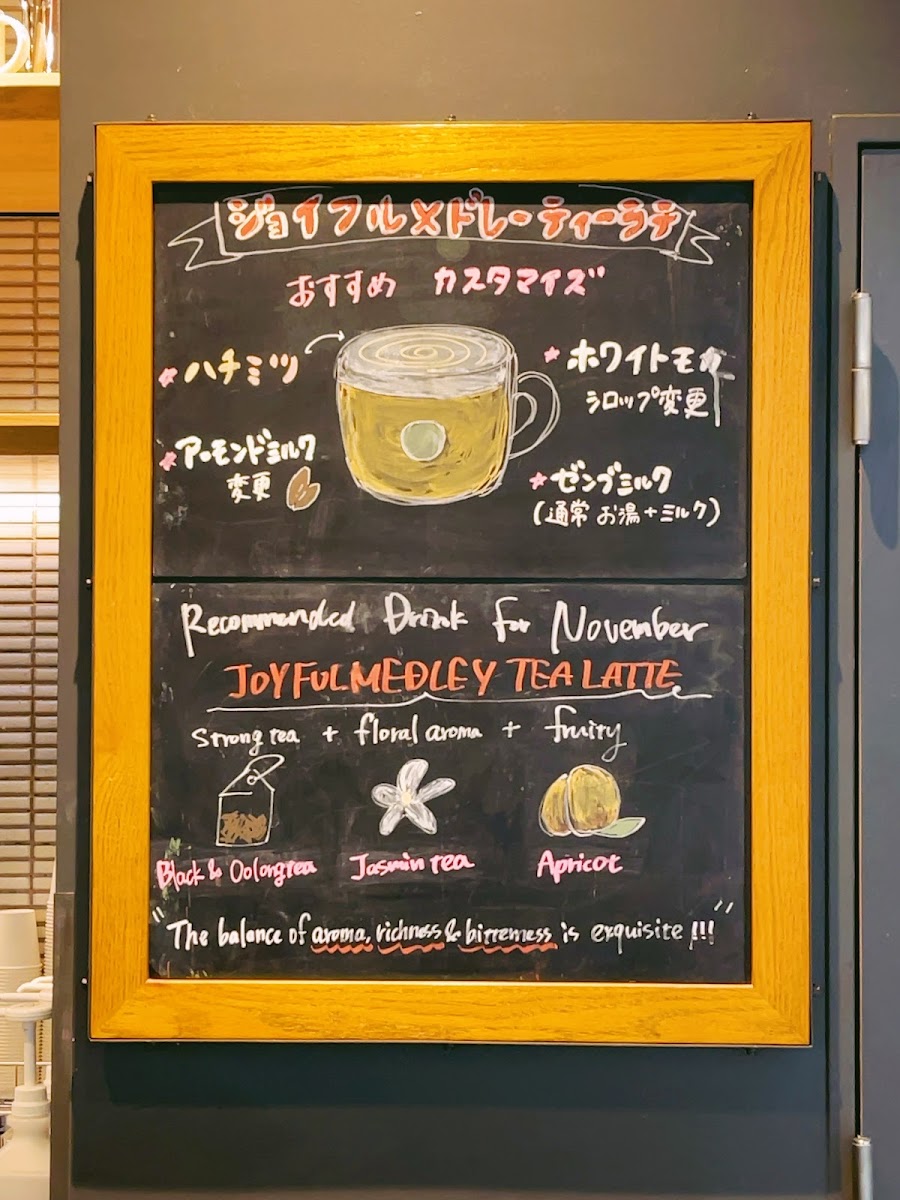 ジョイフルメドレーティーラテ
おすすめ カスタマイズ
ハチミツ
ホワイトモカ
シロップ変更
アーモンドミルク
変更
ゼンブミルク
(通常 お湯+ミルク)
Recommended Drink for November
JOYFUL MEDLEY TEA LATTE
strong tea + floral aroma + fruity
Black & Oolong tea Jasmin tea Apricot
"The balance of aroma, richness & bitterness is exquisite!!!"